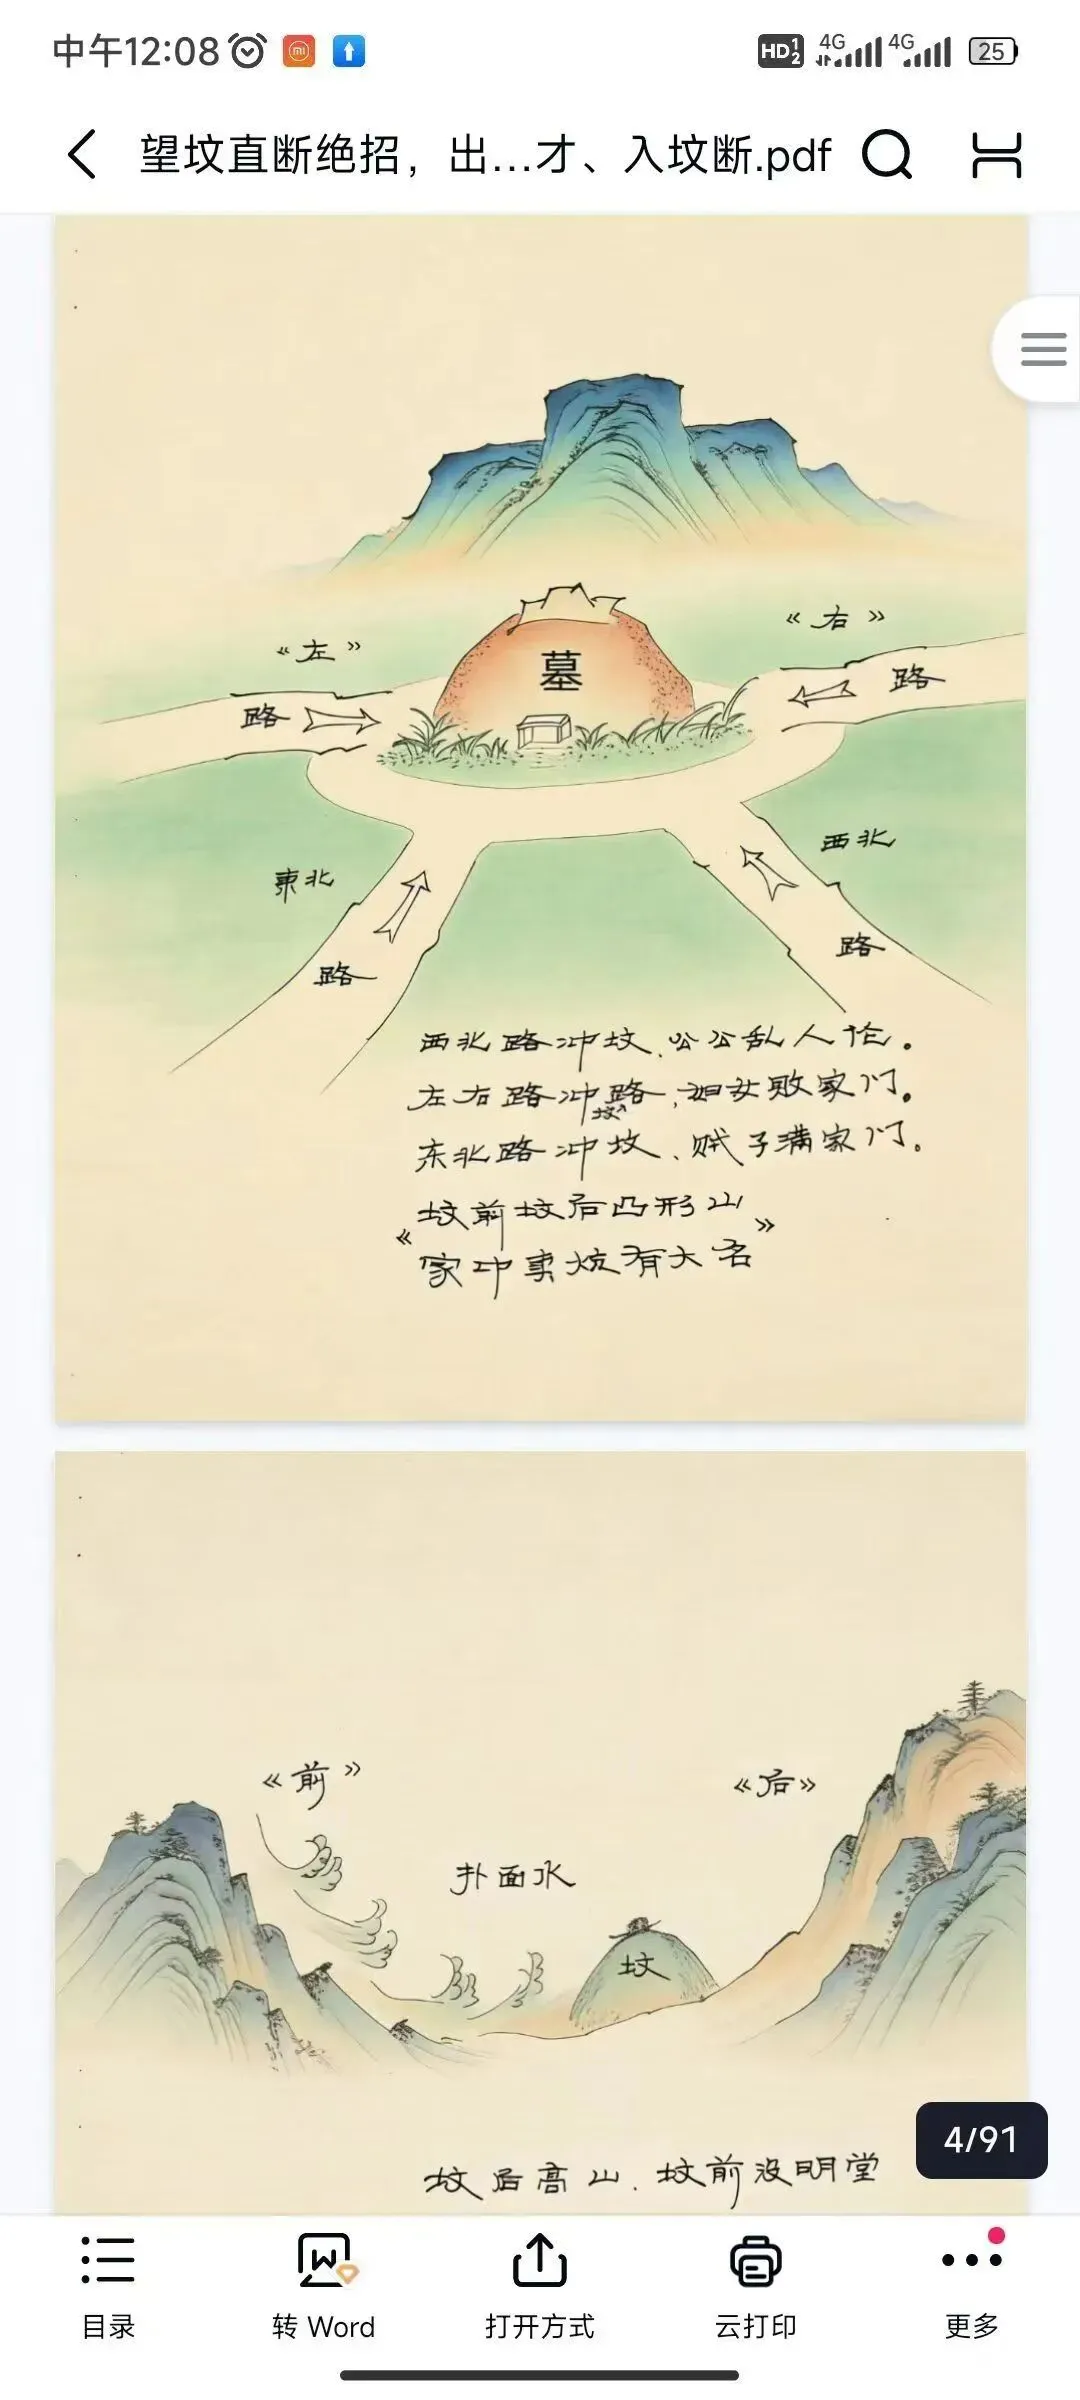 中午12:08
HD 1 2 4G 4G 25
望坟直断绝招，出...才、入坟断.pdf
《右》
《左》
墓
路
路
西北
東北
路
路
西北路冲坟、公公乱人伦。
左右路冲路，妇女败家门。
坟
东北路冲坟、贼子满家门。
《坟前坟后凸形山
家中卖炕有大名》
《前》
《后》
扑面水
坟
4/91
坟后高山、坟前没明堂
目录
转 Word
打开方式
云打印
更多